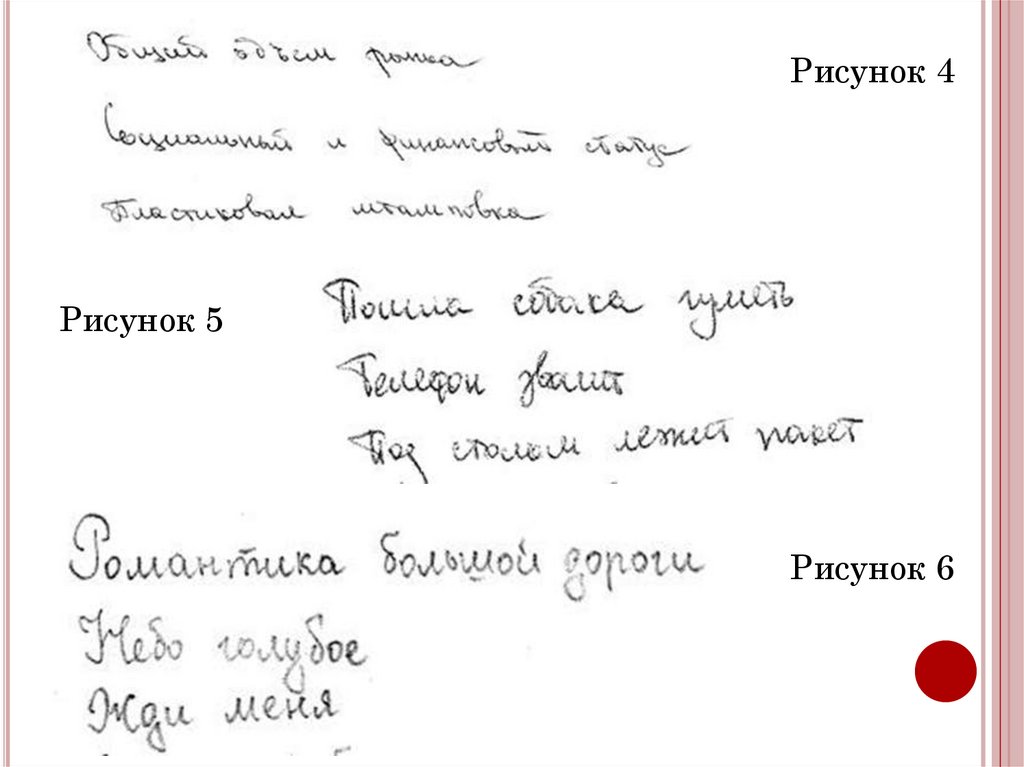 Общий объем рынка
Рисунок 4
Социальный и финансовый статус
Пластиковая штамповка
Рисунок 5
Пошла собака гулять
Телефон звонит
Под столом лежит пакет
Романтика большой дороги
Рисунок 6
Небо голубое
Жди меня